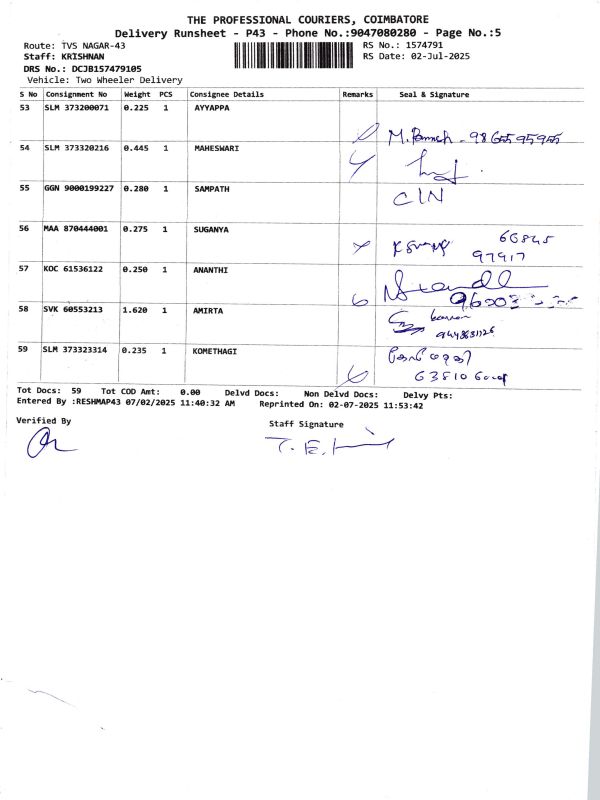 THE PROFESSIONAL COURIERS, COIMBATORE
Delivery Runsheet - P43 - Phone No.:9047080280 - Page No.:5
Route: TVS NAGAR-43 RS No.: 1574791
Staff: KRISHNAN RS Date: 02-Jul-2025
DRS No.: DCJB157479105
Vehicle: Two Wheeler Delivery
S No Consignment No Weight PCS Consignee Details Remarks Seal & Signature
53 SLM 373200071 0.225 1 AYYAPPA
54 SLM 373320216 0.445 1 MAHESWARI
55 GGN 9000199227 0.280 1 SAMPATH CIN
56 MAA 870444001 0.275 1 SUGANYA 97917
57 KOC 61536122 0.250 1 ANANTHI
58 SVK 60553213 1.620 1 AMIRTA
59 SLM 373323314 0.235 1 KOMETHAGI
Tot Docs: 59 Tot COD Amt: 0.00 Delvd Docs: Non Delvd Docs: Delvy Pts:
Entered By :RESHMAP43 07/02/2025 11:40:32 AM Reprinted On: 02-07-2025 11:53:42
Verified By Staff Signature